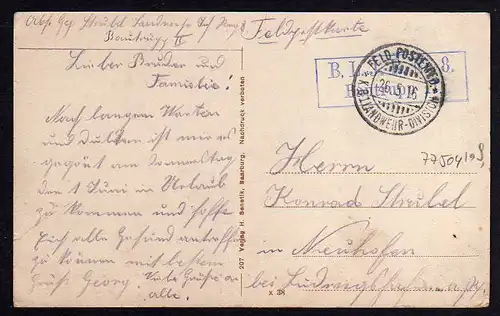 Abs. Gg Streubel Landwehr
Bautrupp II
Feldpostkarte
Lieber Bruder und
Familie!
Nach langem Warten
und Dulden ist mir es
gegönt am Donnerstag
den 1 Juni in Urlaub
zu kommen und hoffe
Eich alle Gesund antreffen
zu können mit besten
Gruß Georg. Viele Grüße an
alle.
207 Verlag H. Benetik, Saarburg. Nachdruck verboten
B. L. 8.
FELD-POSTEXP.
26.5.16
LANDWEHR-DIVISION
77504
Herrn
Konrad Streubel
in Neuhofen
bei Ludwigshafen a/R
X